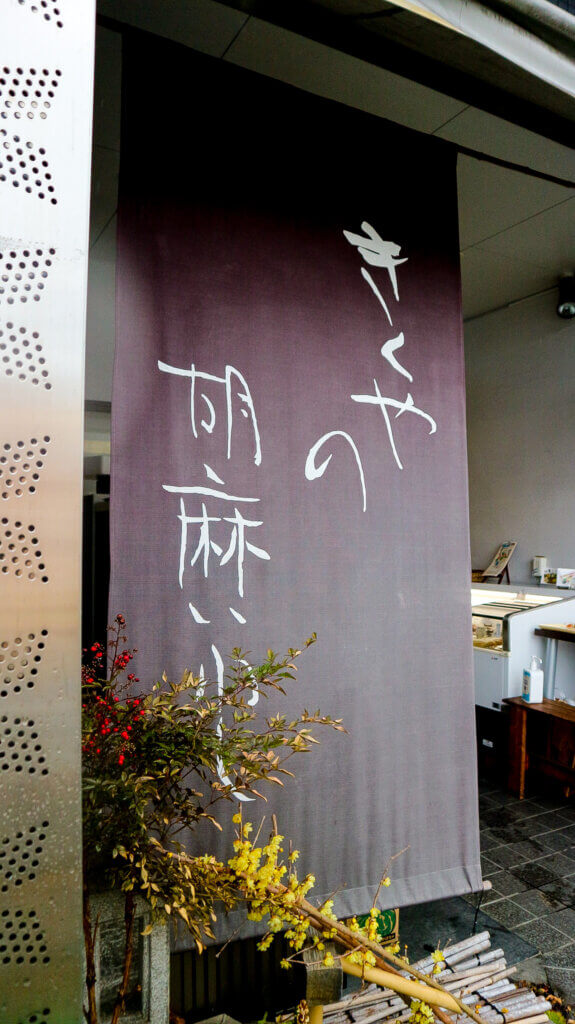 きくやの
胡麻い